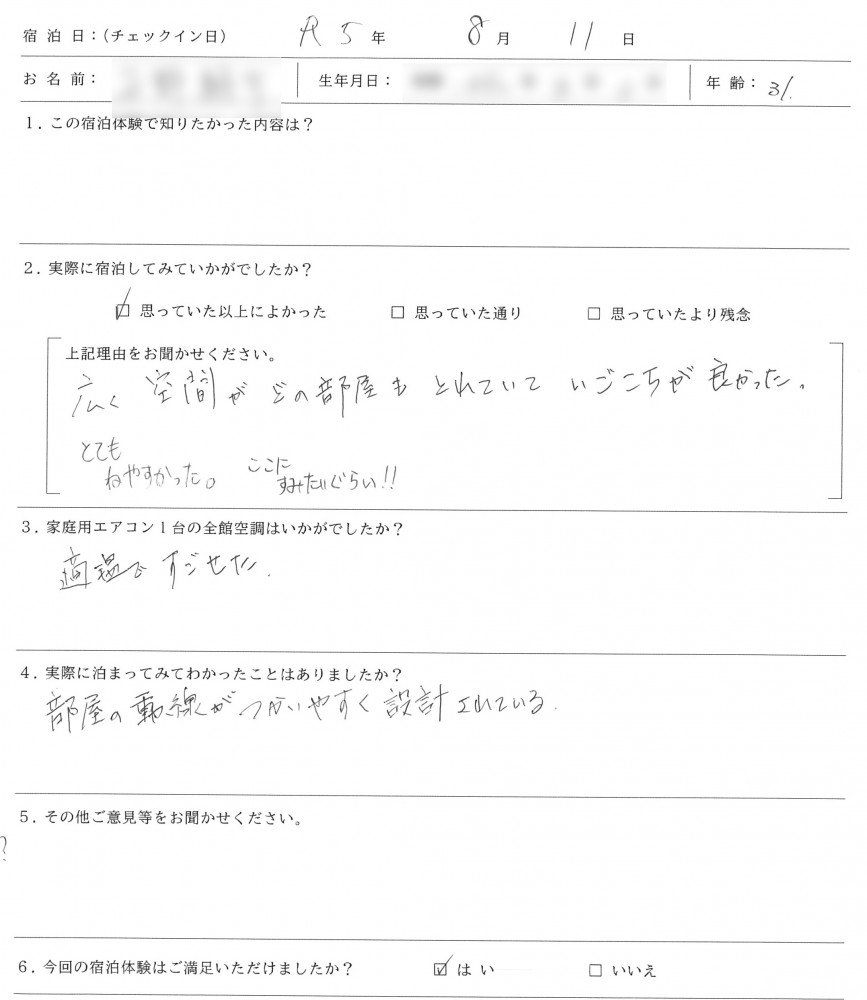 宿泊日：（チェックイン日） R5年 8月 11日
お名前： 生年月日： 年齢：31.
1．この宿泊体験で知りたかった内容は？
2．実際に宿泊してみていかがでしたか？
☑ 思っていた以上によかった □ 思っていた通り □ 思っていたより残念
上記理由をお聞かせください。
広く空間がどの部屋もとれていていごこちが良かった。
とても
ねやすかった。 ここに
すみたいぐらい!!
3．家庭用エアコン1台の全館空調はいかがでしたか？
適温ですごせた.
4．実際に泊まってみてわかったことはありましたか？
部屋の動線がつかいやすく設計されている.
5．その他ご意見等をお聞かせください。
?
6．今回の宿泊体験はご満足いただけましたか？ ☑ はい □ いいえ